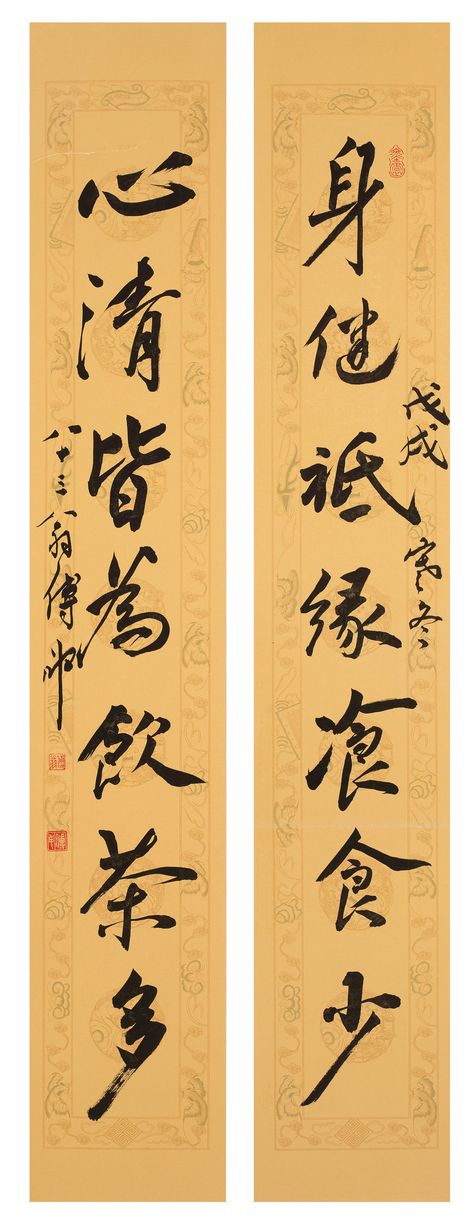 身健祗緣飡食少
戊戌寒冬
心清皆為飲茶多
八十三翁傅